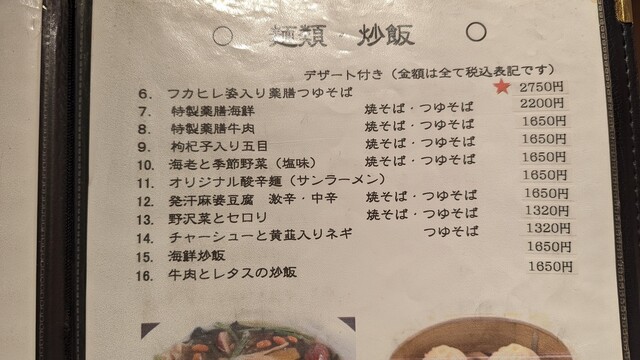 ○ 麺類・炒飯 ○
デザート付き（金額は全て税込表記です）
6. フカヒレ姿入り薬膳つゆそば ★ 2750円
7. 特製薬膳海鮮 焼そば・つゆそば 2200円
8. 特製薬膳牛肉 焼そば・つゆそば 1650円
9. 枸杞子入り五目 焼そば・つゆそば 1650円
10. 海老と季節野菜（塩味） 焼そば・つゆそば 1650円
11. オリジナル酸辛麺（サンラーメン） 1650円
12. 発汗麻婆豆腐 激辛・中辛 焼そば・つゆそば 1650円
13. 野沢菜とセロリ 焼そば・つゆそば 1320円
14. チャーシューと黄韮入りネギ つゆそば 1320円
15. 海鮮炒飯 1650円
16. 牛肉とレタスの炒飯 1650円